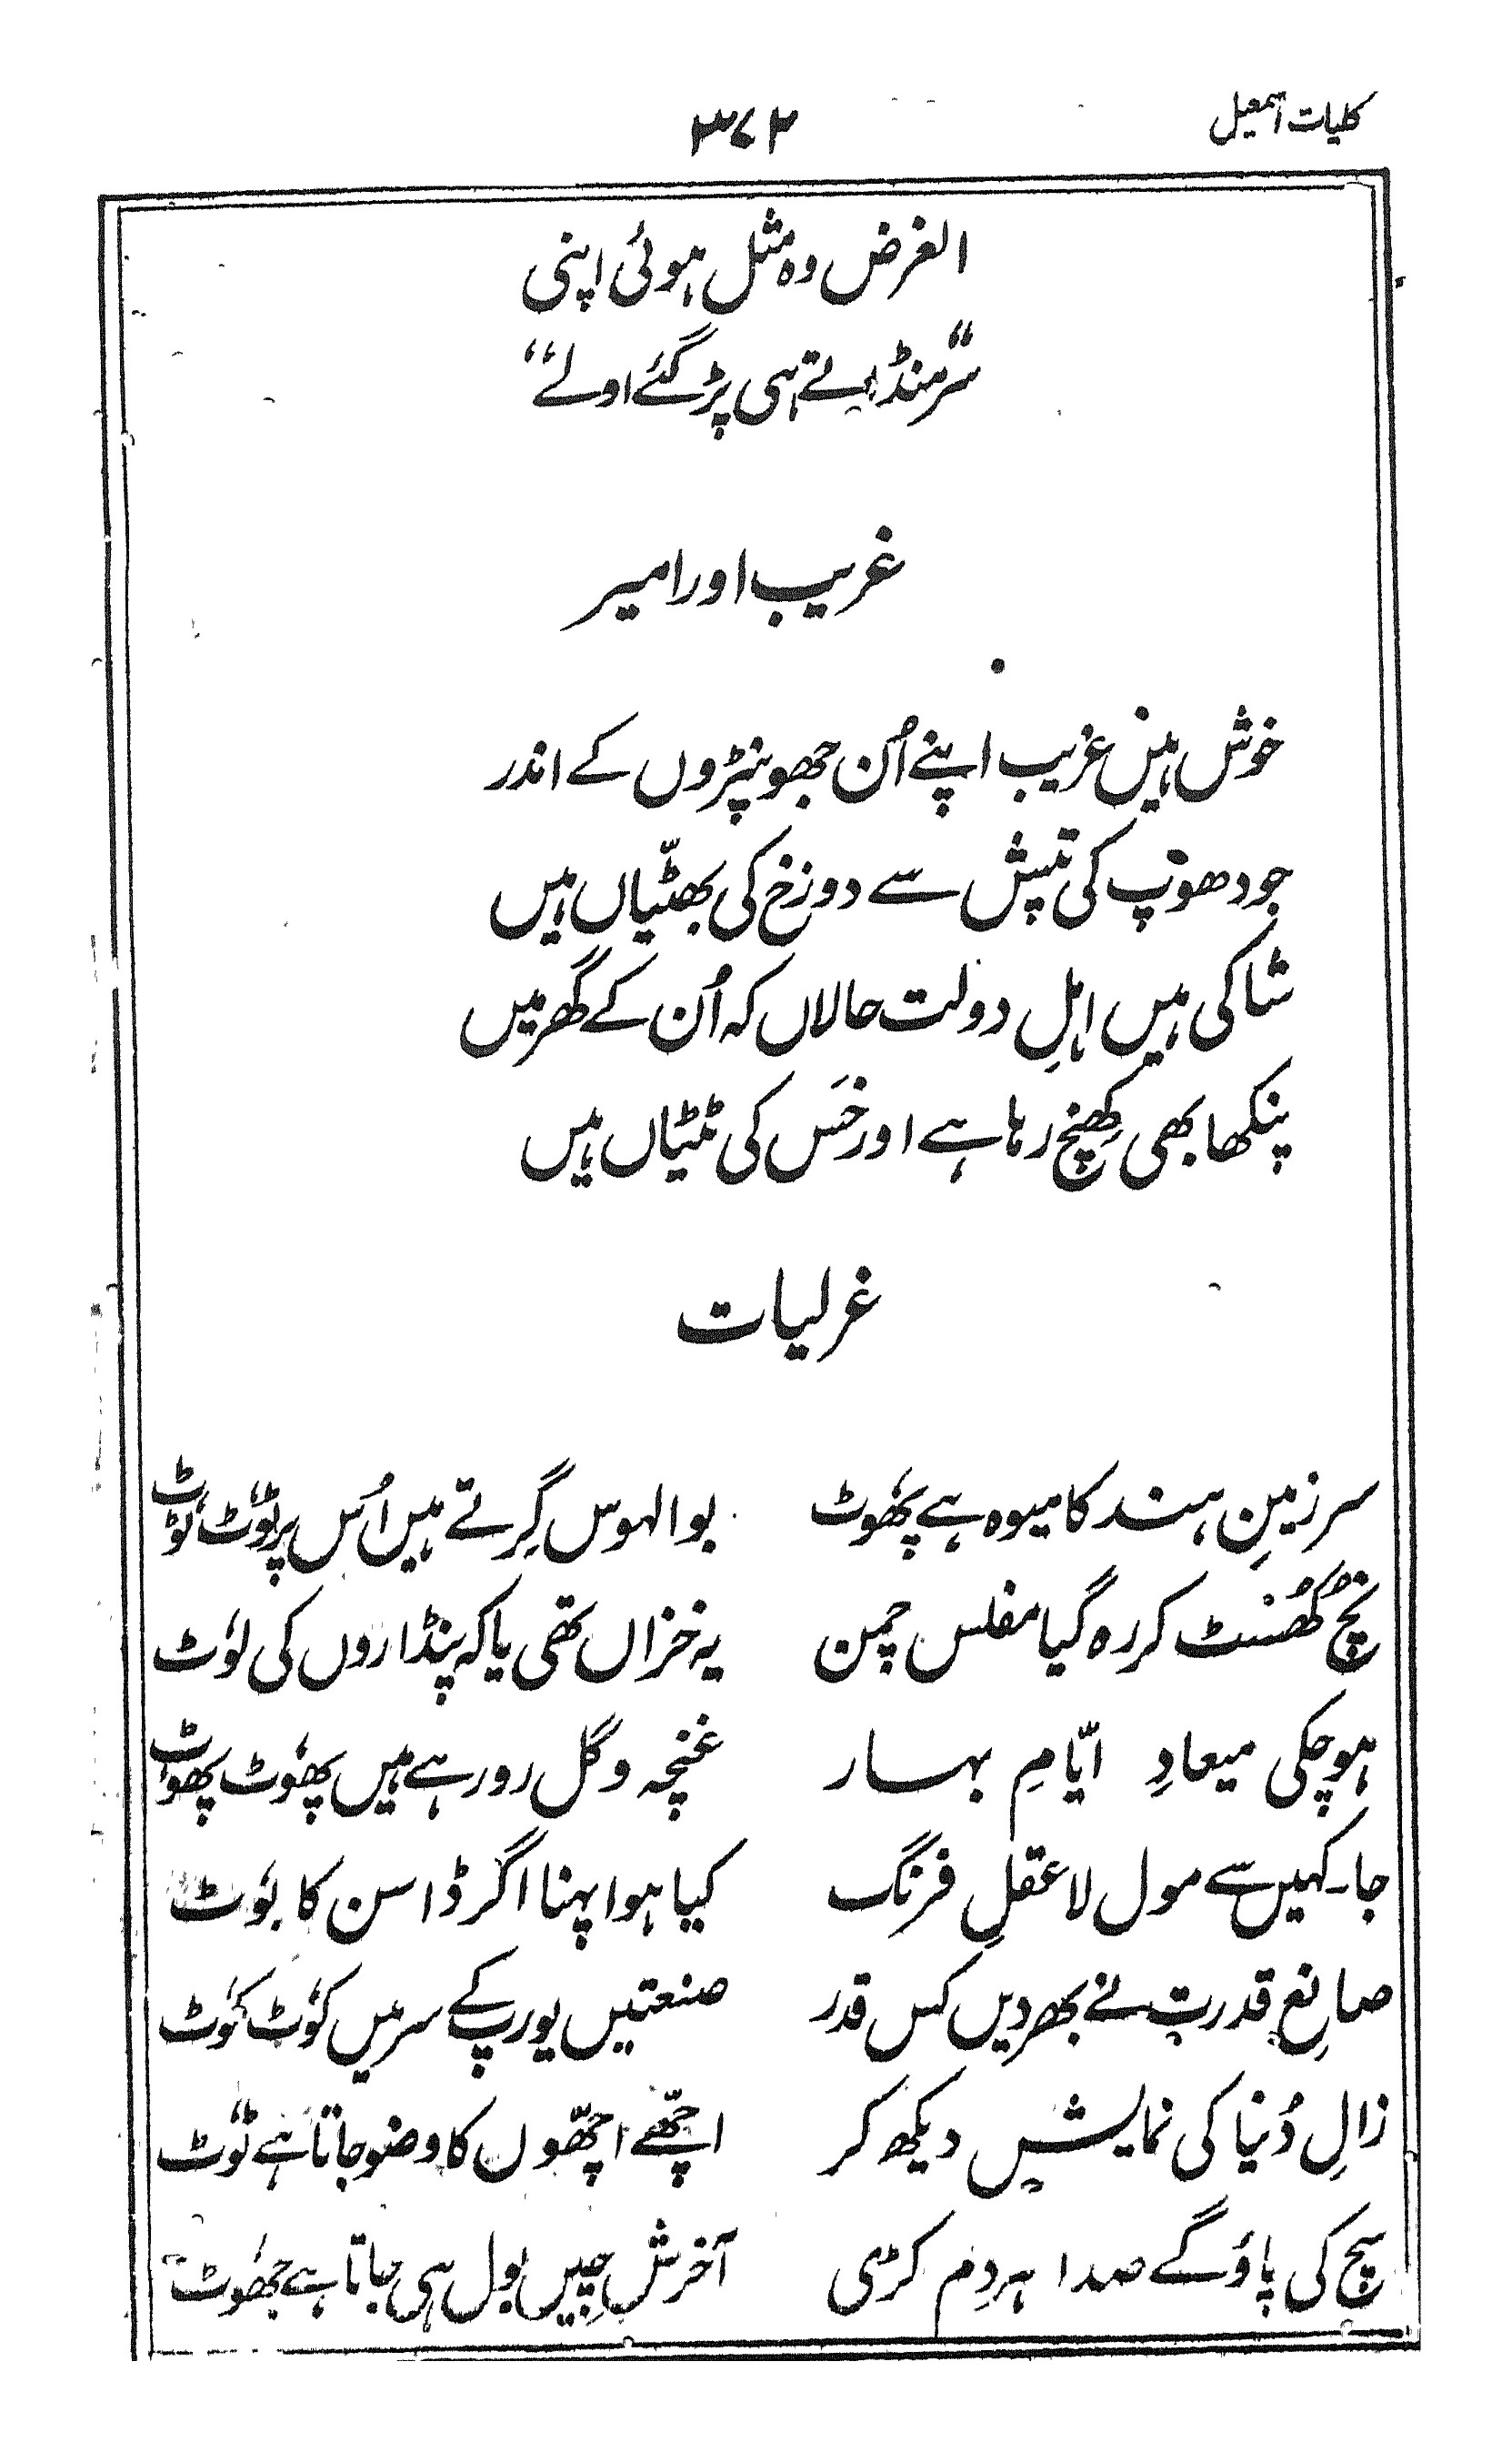 کلیات اسمعیل
۳۷۲
الغرض وہ مثل ہوئی اپنی
“سر منڈاتے ہی پڑ گئے اولے”
غریب اور امیر
خوش ہیں غریب اپنے اُن جھونپڑوں کے اندر
جو دھوپ کی تپش سے دوزخ کی بھٹّیاں ہیں
شاکی ہیں اہلِ دولت حالاں کہ اُن کے گھر میں
پنکھا بھی کِھنچ رہا ہے اور خَس کی ٹٹیاں ہیں
غزلیات
سرزمینِ ہند کا میوہ ہے پھُوٹ بوالہوس گِرتے ہیں اُس پر ٹوُٹ ٹوُٹ
نُچ کُھسُنٹ کر رہ گیا مفلس چمن یہ خزاں تھی یا کہ پنڈاروں کی لوُٹ
ہو چکی میعادِ ایّامِ بہار غنچہ و گل رو رہے ہیں پھوُٹ پھوُٹ
جا۔ کہیں سے مول لا عقلِ فرنگ کیا ہوا پہنا اگر ڈاسن کا بوُٹ
صانِع قدرت نے بھر دیں کس قدر صنعتیں یورپ کے سر میں کوُٹ کوُٹ
زالِ دُنیا کی نمایشیں دیکھ کر اچّھے اچّھوں کا وضو جاتا ہے ٹوُٹ
سچ کی پاؤ گے صدا ہر دم کڑی آخرش چِیں بول ہی جاتا ہے جھوُٹ